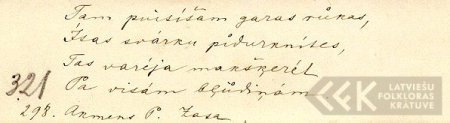 Tam puisišam garas rūkas,
Īsas svārku pidurknites,
Tas varēja makšķerēt
321
Pa visām bļūdiņām
298. Akmens P. Zosa.
LATVIEŠU
FOLKLORAS
KRĀTUVE